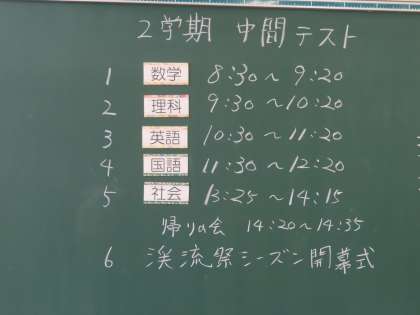 2学期 中間テスト
1 数学 8:30〜9:20
2 理科 9:30〜10:20
3 英語 10:30〜11:20
4 国語 11:30〜12:20
5 社会 13:25〜14:15
帰りの会 14:20〜14:35
6 渓流祭シーズン開幕式